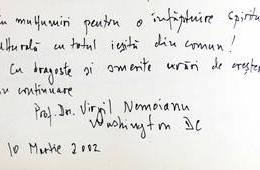 în mulțumiri pentru o înfăptuire spiritu
ulturală cu totul ieșită din comun!
Cu dragoste și smerite urări de creșter
în continuare
Prof. Dr. Virgil Nemoianu
Washington DC
10 Martie 2002